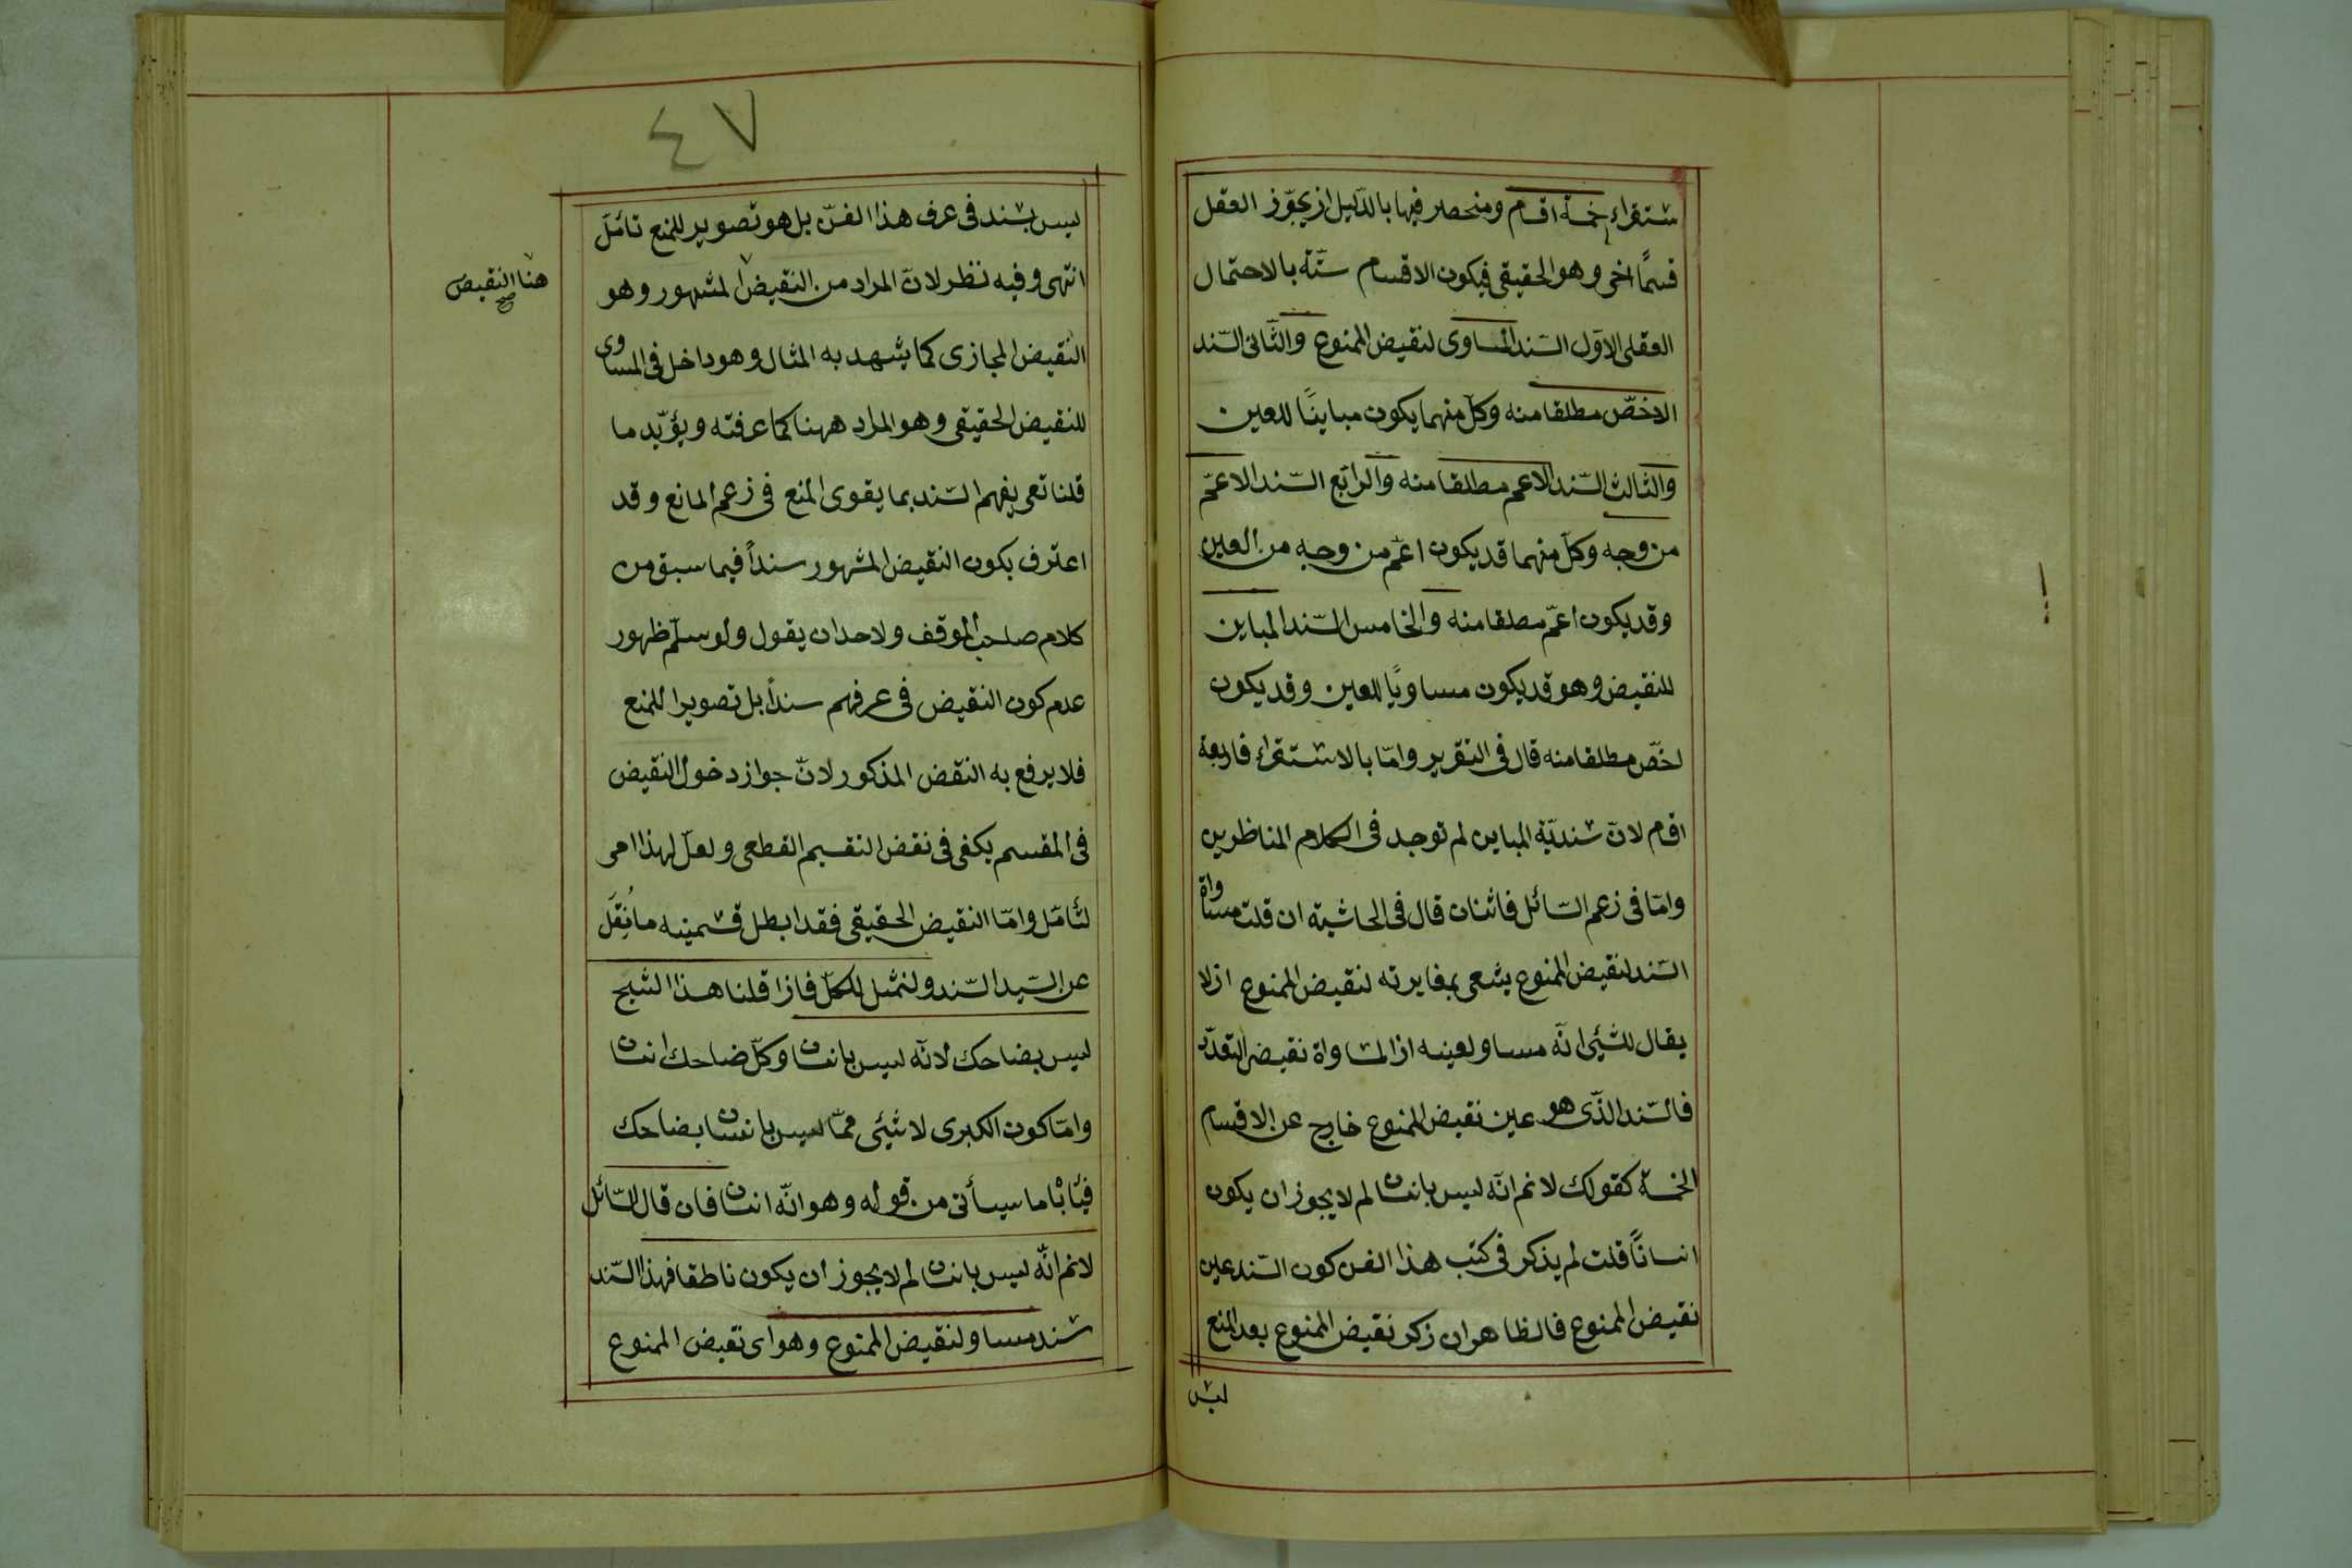 ستقراء خمسة اقسام ومنحصر فيها بالدّليل اذ يجوّز العقل
قسمًا اخر وهو الحقيقى فيكون الاقسام ستّة بالاحتمال
العقلى الاوّل السّند المساوى لنقيض الممنوع والثّانى السّند
الاخصّ مطلقا منه وكلّ منهما يكون مباينًا للعين
والثالث السّند الاعم مطلقا منه والرابع السّند الاعمّ
من وجه وكلّ منهما قد يكون اعمّ من وجه من العين
وقد يكون اعمّ مطلقا منه والخامس السّند المباين
للنقيض وهو قد يكون مساويًا للعين وقد يكون
اخصّ مطلقا منه قال فى التقرير وامّا بالاستقراء فاربعة
اقسام لانّ سنديّة المباين لم توجد فى الكلام المناظرين
وامّا فى زعم السّائل فاثنان قال فى الحاشية ان قلت مساواة
السّند لنقيض الممنوع يشعر بمغايرته لنقيض الممنوع اذ لا
يقال للشّيئ انّه مساو لعينه اذ المساواة نقيض التعدّد
فالسّند الّذى هو عين نقيض الممنوع خارج عن الاقسام
الخمسة كقولك لانم انّه ليس بانسان لم لا يجوز ان يكون
انسانًا قلت لم يذكر فى كتب هذا الفن كون السّند عين
نقيض الممنوع فالظاهر ان ذكر نقيض الممنوع بعد المنع
ليس
٤٧
ليس بسند فى عرف هذا الفنّ بل هو تصوير للمنع تأمّل
انتهى وفيه نظر لانّ المراد من النقيض المشهور وهو
هنا النقيض
صح
النقيض المجازى كما يشهد به المثال وهو داخل فى المساوى
للنقيض الحقيقى وهو المراد ههنا كما عرفته ويؤيّد ما
قلنا تعريفهم السّند بما يقوى المنع فى زعم المانع وقد
اعترف بكون النقيض المشهور سندًا فيما سبق من
كلام صاحب الموقف ولاحد ان يقول ولو سلّم ظهور
عدم كون النقيض فى عرفهم سندًا بل تصويرا للمنع
فلا يرفع به النقض المذكور لانّ جواز دخول النقيض
فى المقسم يكفى فى نقض التقسيم القطعى ولعلّ لهذا امر
لتأمّل وامّا النقيض الحقيقى فقد ابطل قسمينه ما نُقِلَ
عن السّيد السّند ولنمثل للكلّ فاذا قلنا هذا الشبح
ليس بضاحك لانّه ليس بانسان وكلّ ضاحك انسان
وامّا كون الكبرى لا شيئى ممّا ليس بانسان بضاحك
فيأباه ما سيأتى من قوله وهو انّه انسان فان قال السّائل
لانم انّه ليس بانسان لم لا يجوز ان يكون ناطقا فهذا السّند
سند مساو لنقيض الممنوع وهو اى نقيض الممنوع